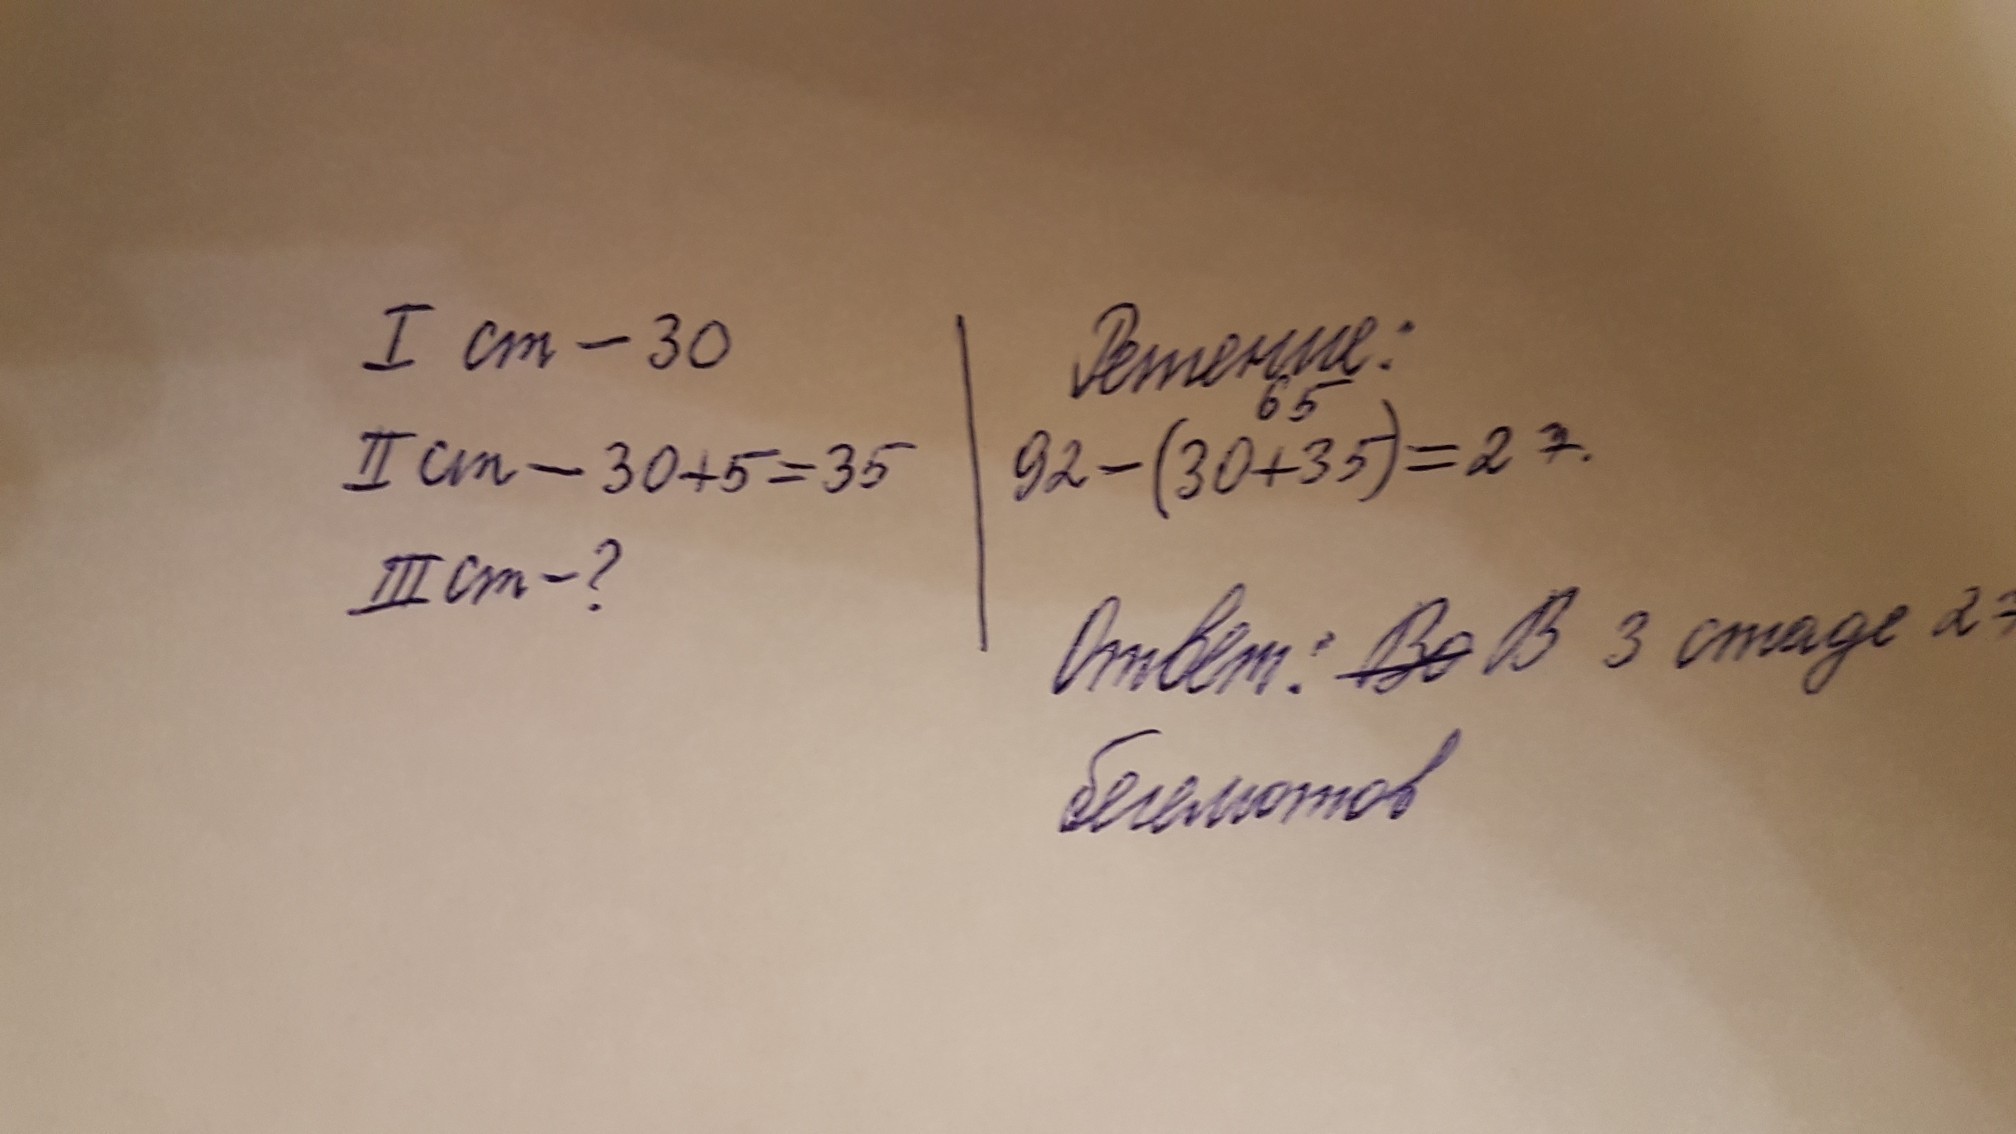 I ст – 30
II ст – 30+5=35
III ст – ?
Решение:
65
92 – (30+35) = 27.
Ответ: Во В 3 стаде 27
бегемотов